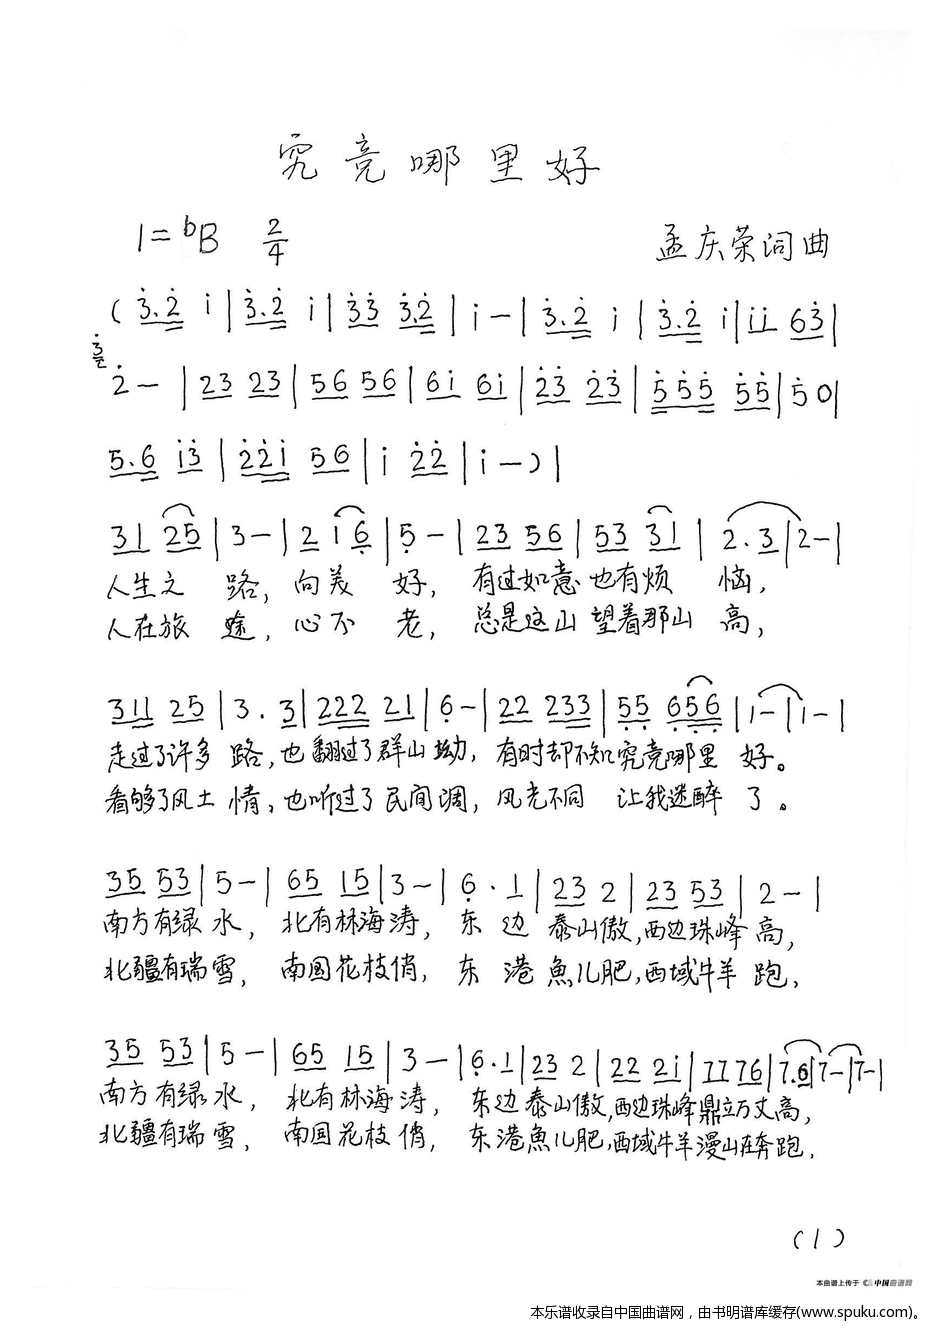 究竟哪里好
1=ᵇB 2/4 孟庆荣词曲
(3̇.2̇ i|3̇.2̇ i|3̇3̇ 3̇.2̇|i–|3̇.2̇ i|3̇.2̇ i|ii 63̇|
3̇ 2̇–|23 23|56 56|6i 6i|2̇3̇ 2̇3̇|5̇5̇5̇ 5̇5̇|5̇0|
5.6 i3̇|2̇2̇i 56|i 2̇2̇|i–)|
31 25|3–|2 16̣|5̣–|23 56|53 31|2.3|2–|
人生之 路，向美 好，有过如意也有烦 恼，
人在旅 途，心不 老，总是这山望着那山 高，
311 25|3.3|222 21|6̣–|22 233|5̣5̣ 6̣5̣6̣|1–|1–|
走过了许多 路，也翻过了群山坳，有时却不知究竟哪里 好。
看够了风土 情，也听过了民间调，风光不同 让我迷醉 了。
35 53|5–|65 15|3–|6̣.1|23 2|23 53|2–|
南方有绿水，北有林海涛，东边 泰山傲，西边珠峰高，
北疆有瑞雪，南国花枝俏，东港魚儿肥，西域牛羊跑，
35 53|5–|65 15|3–|6̣.1|23 2|22 2i|7776|7.6|7–|7–|
南方有绿水，北有林海涛，东边泰山傲，西边珠峰鼎立万丈高，
北疆有瑞雪，南国花枝俏，东港魚儿肥，西域牛羊漫山在奔跑，
(1)
本曲谱上传于 中国曲谱网
本乐谱收录自中国曲谱网，由书明谱库缓存(www.spuku.com)。